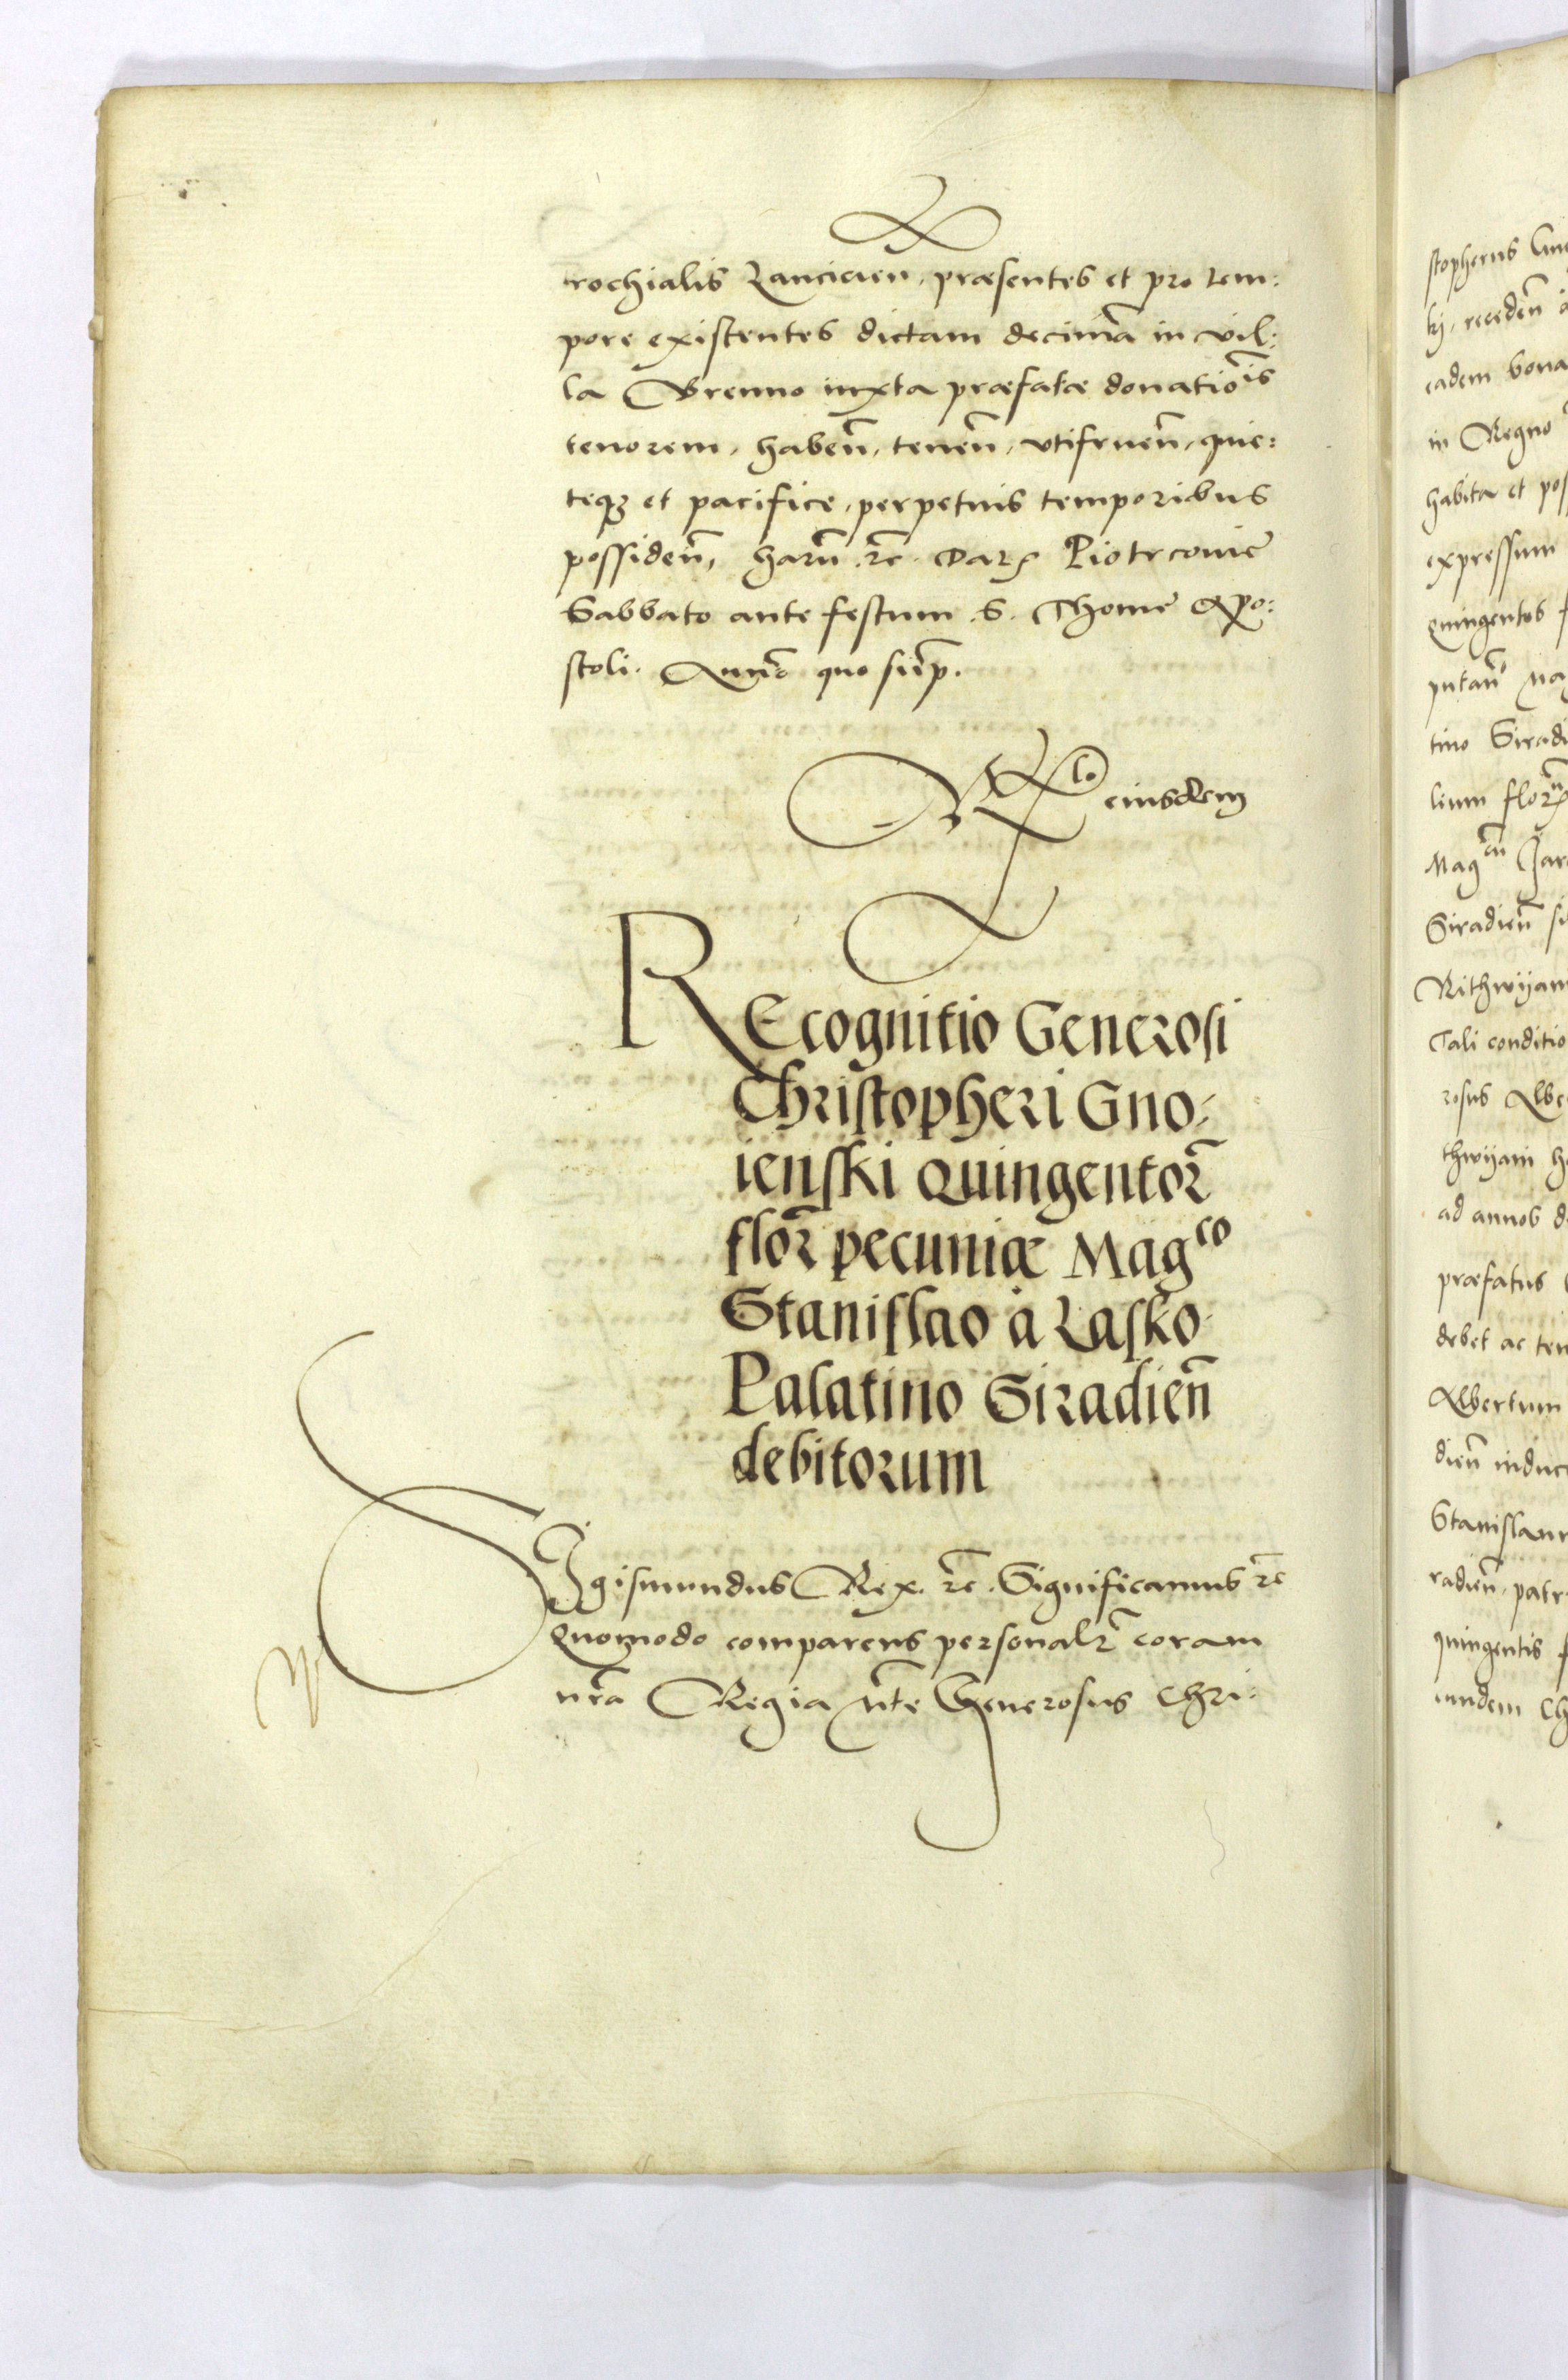 rochialis Lancicien, præsentes et pro tem:
pore existentes dictam decimā in vil:
la Brenno iuxta præfatæ donatiōis
tenorem, habeñ, teneñ, vtifrueñ, quie:
teqꝫ et pacifice, perpetuis temporibus
possideñ, harū. ꝛc. Datꝭ Piotrconie
Sabbato ante festum .S. Thome Apo:
stoli. Anno quo sup̄.
Rlo eiusdem
REcognitio Generosi
Christopheri Gno:
ienski quingentoꝝ
floꝝ pecuniæ Magco
Stanislao à Lasko
Palatino Siradieñ
debitorum
SIgismundus Rex. ꝛc. Significamus ꝛc
Quomodo comparens personalꝛ̄ coram
nr̄a Regia Mte Generosus Chri:
stopherus Gn
kj, recedeñ
eadem bona
in Regno
habita et pos
expressum
quingentos f
putañ
tino Siradi
lium floꝝ
Magcu Jar
Siradieñ
Rithwyan
Tali conditio
rosus Albe
thwyani
ad annos d
præfatus
debet ac ten
Albertum
dieñ induc
Stanislau
radieñ, patr
quingentis f
eundem Ch